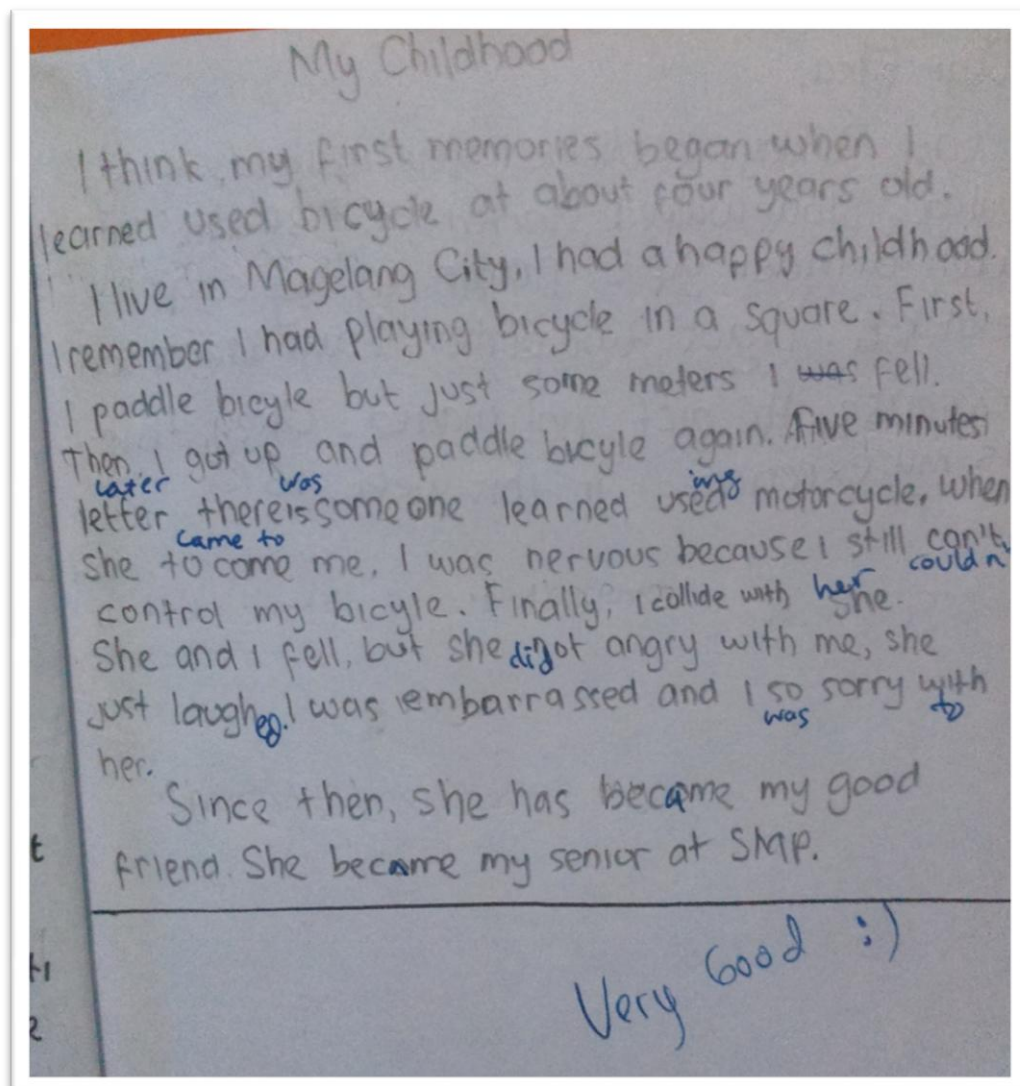 My Childhood
I think my first memories began when I
learned used bicycle at about four years old.
I live in Magelang City, I had a happy childhood.
I remember I had playing bicycle in a square. First,
I paddle bicyle but just some meters I was fell.
Then, I got up and paddle bicyle again. Five minutes
later was ing
letter there is someone learned used motorcycle, when
came to
she to come me, I was nervous because I still can't
couldn
control my bicyle. Finally, I collide with her she.
She and I fell, but she did not angry with me, she
just laughed. I was embarrassed and I so sorry with
was to
her.
Since then, she has became my good
friend. She became my senior at SMP.
t
2
Very Good :)